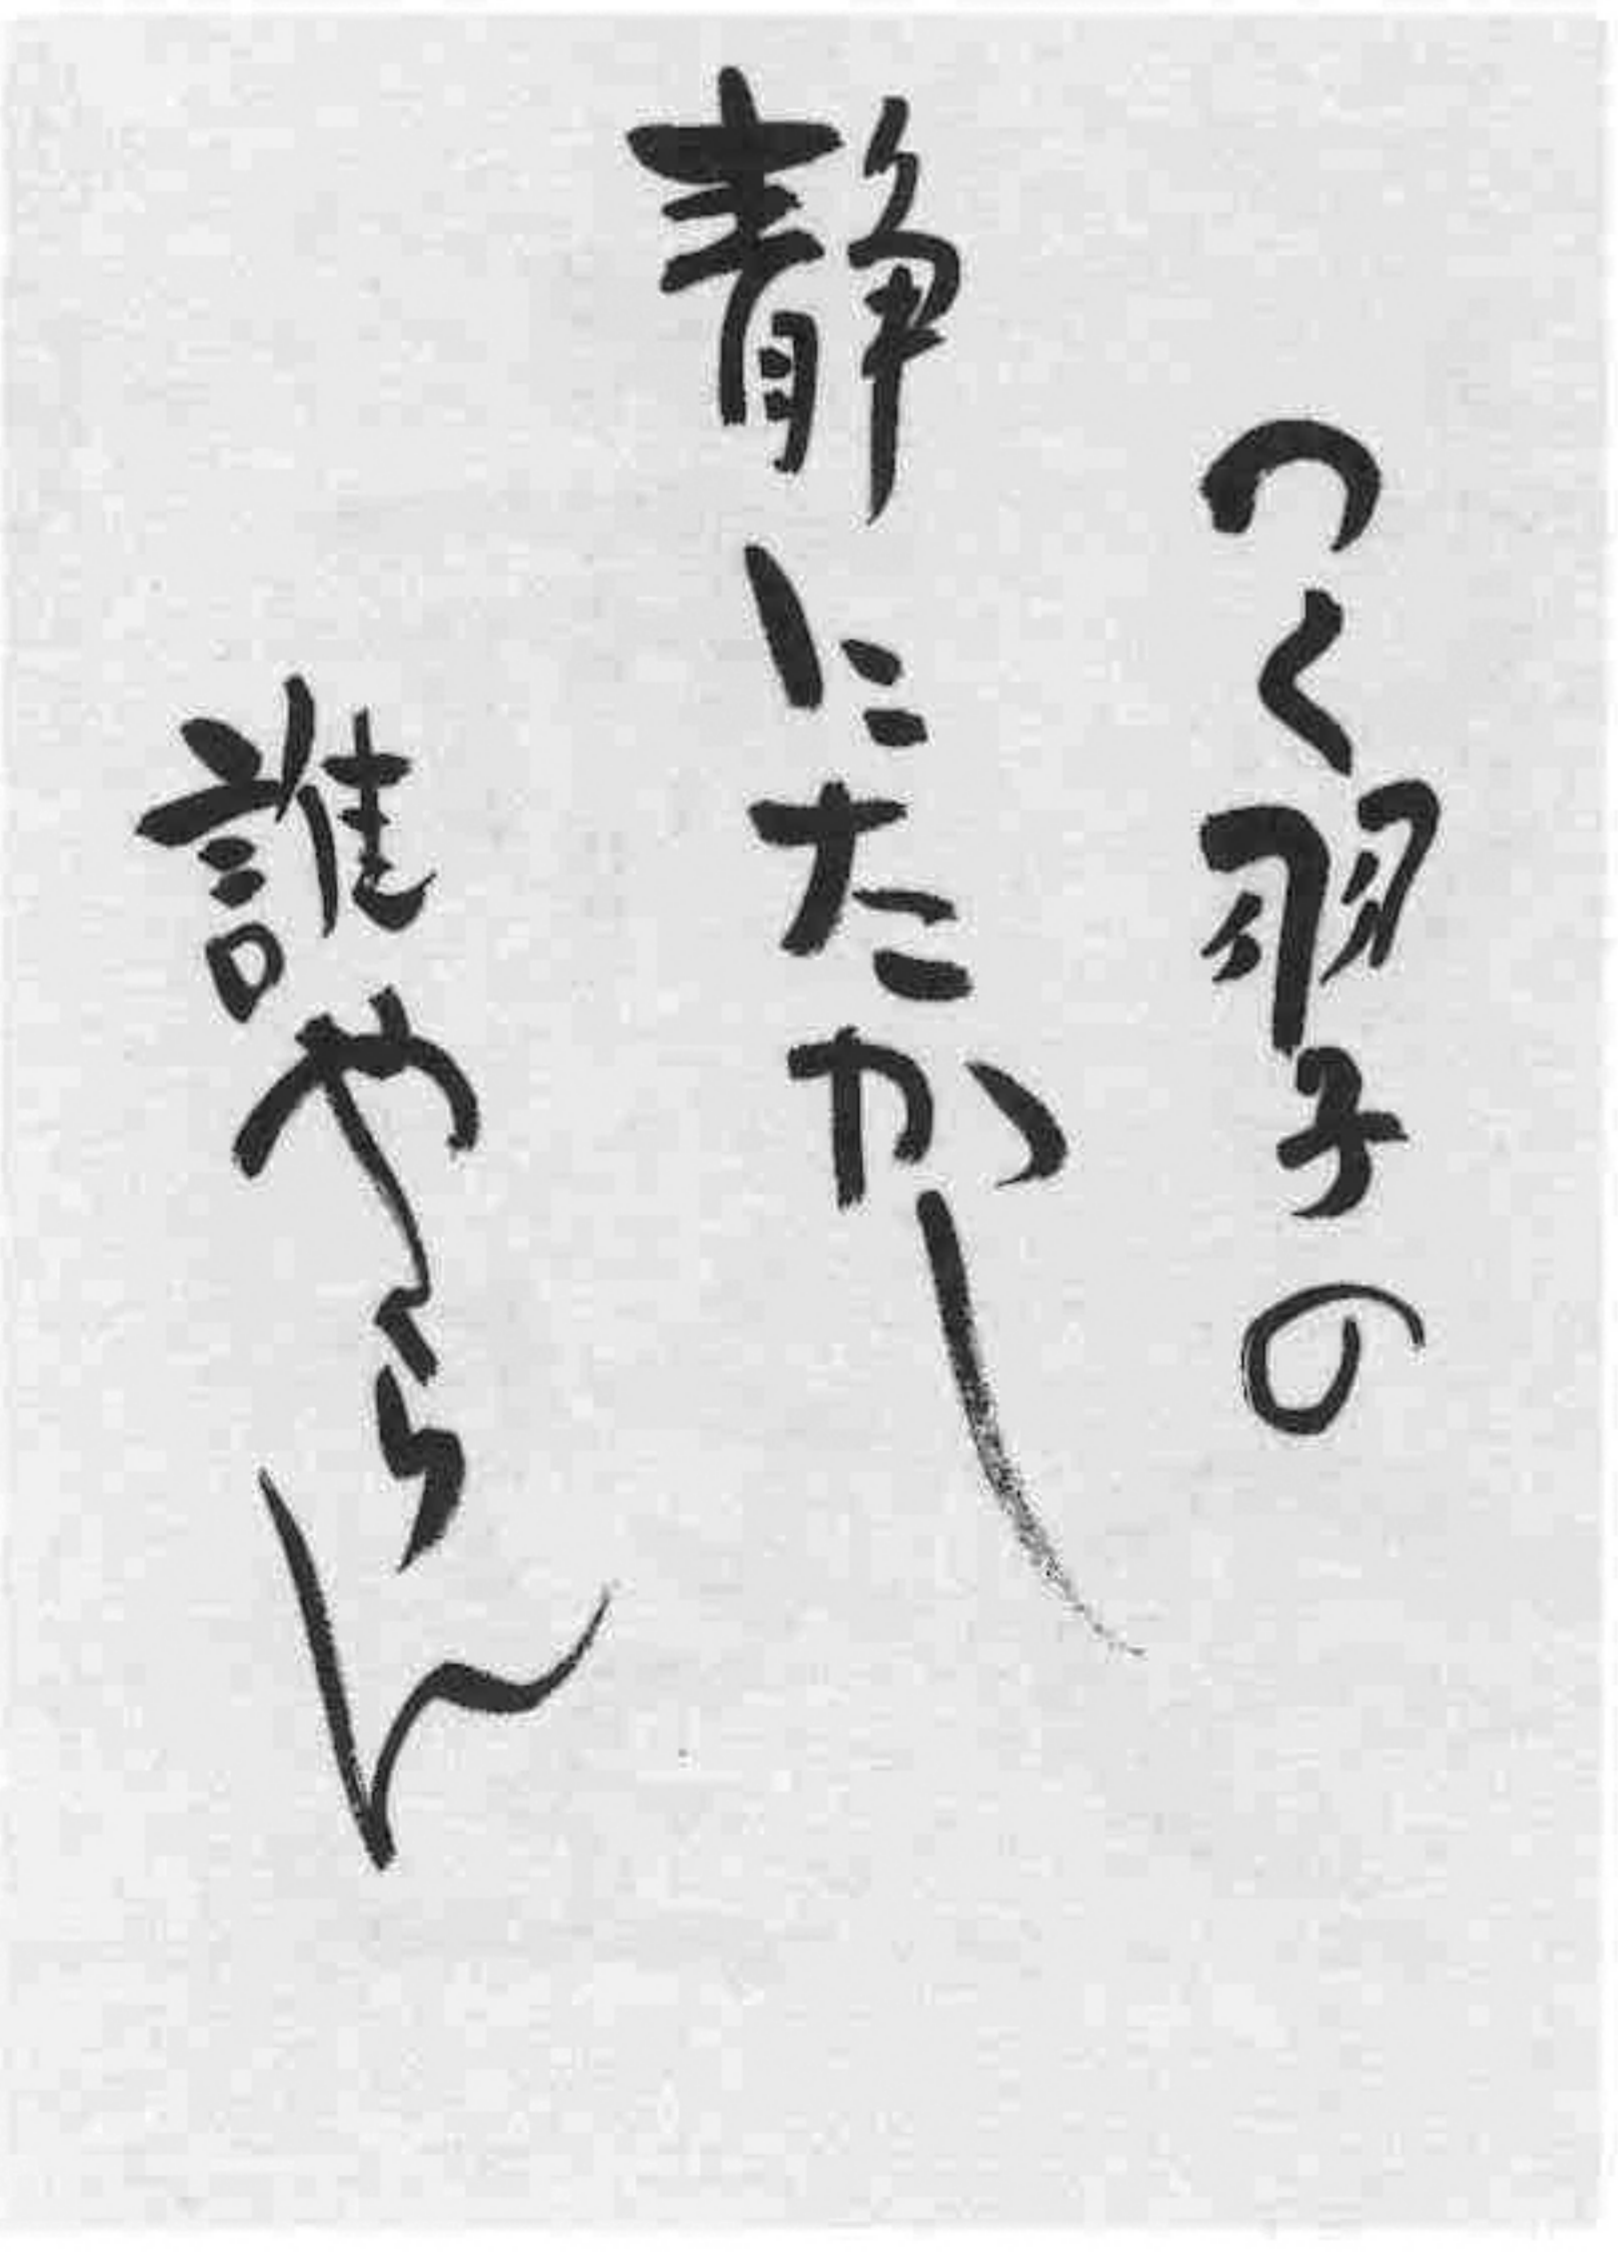 つく羽子の
静にたかし
誰やらん